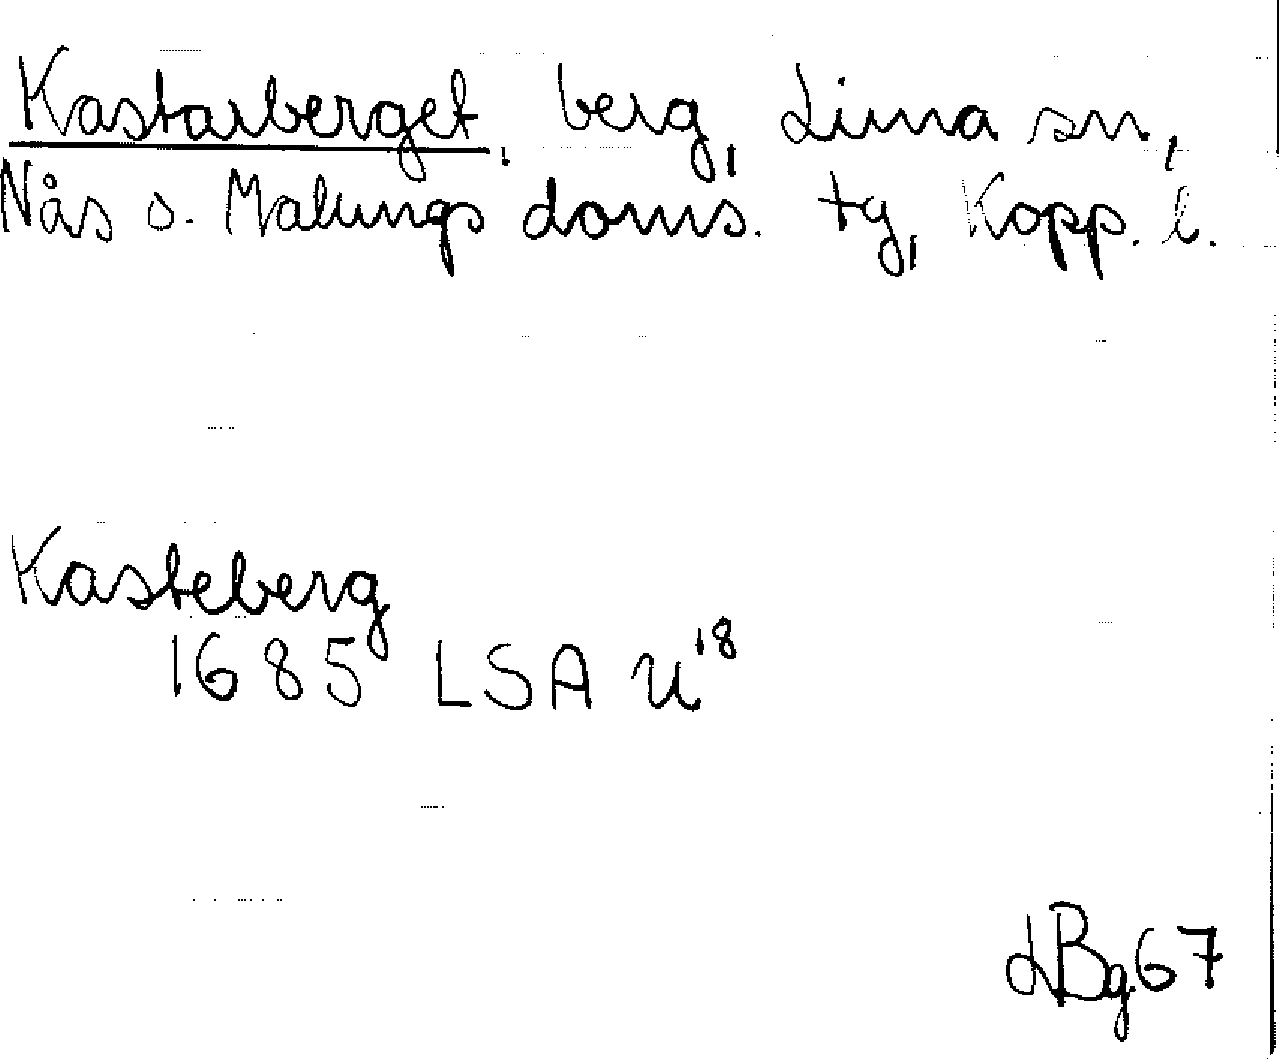 Kastarberget, berg, Lima sn,
Nås o. Malungs doms. tg, Kopp. l.
Kasteberg
1685 LSA U18
LBg 67